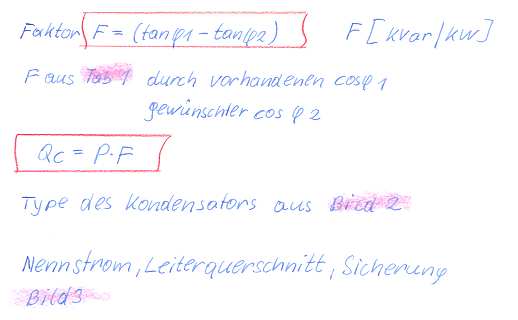 Faktor F = (tanφ1 - tanφ2) F [kvar/kW]
F aus Tab 1 durch vorhandenen cosφ1
gewünschter cos φ2
Qc = P·F
Type des Kondensators aus Bild 2
Nennstrom, Leiterquerschnitt, Sicherung
Bild3